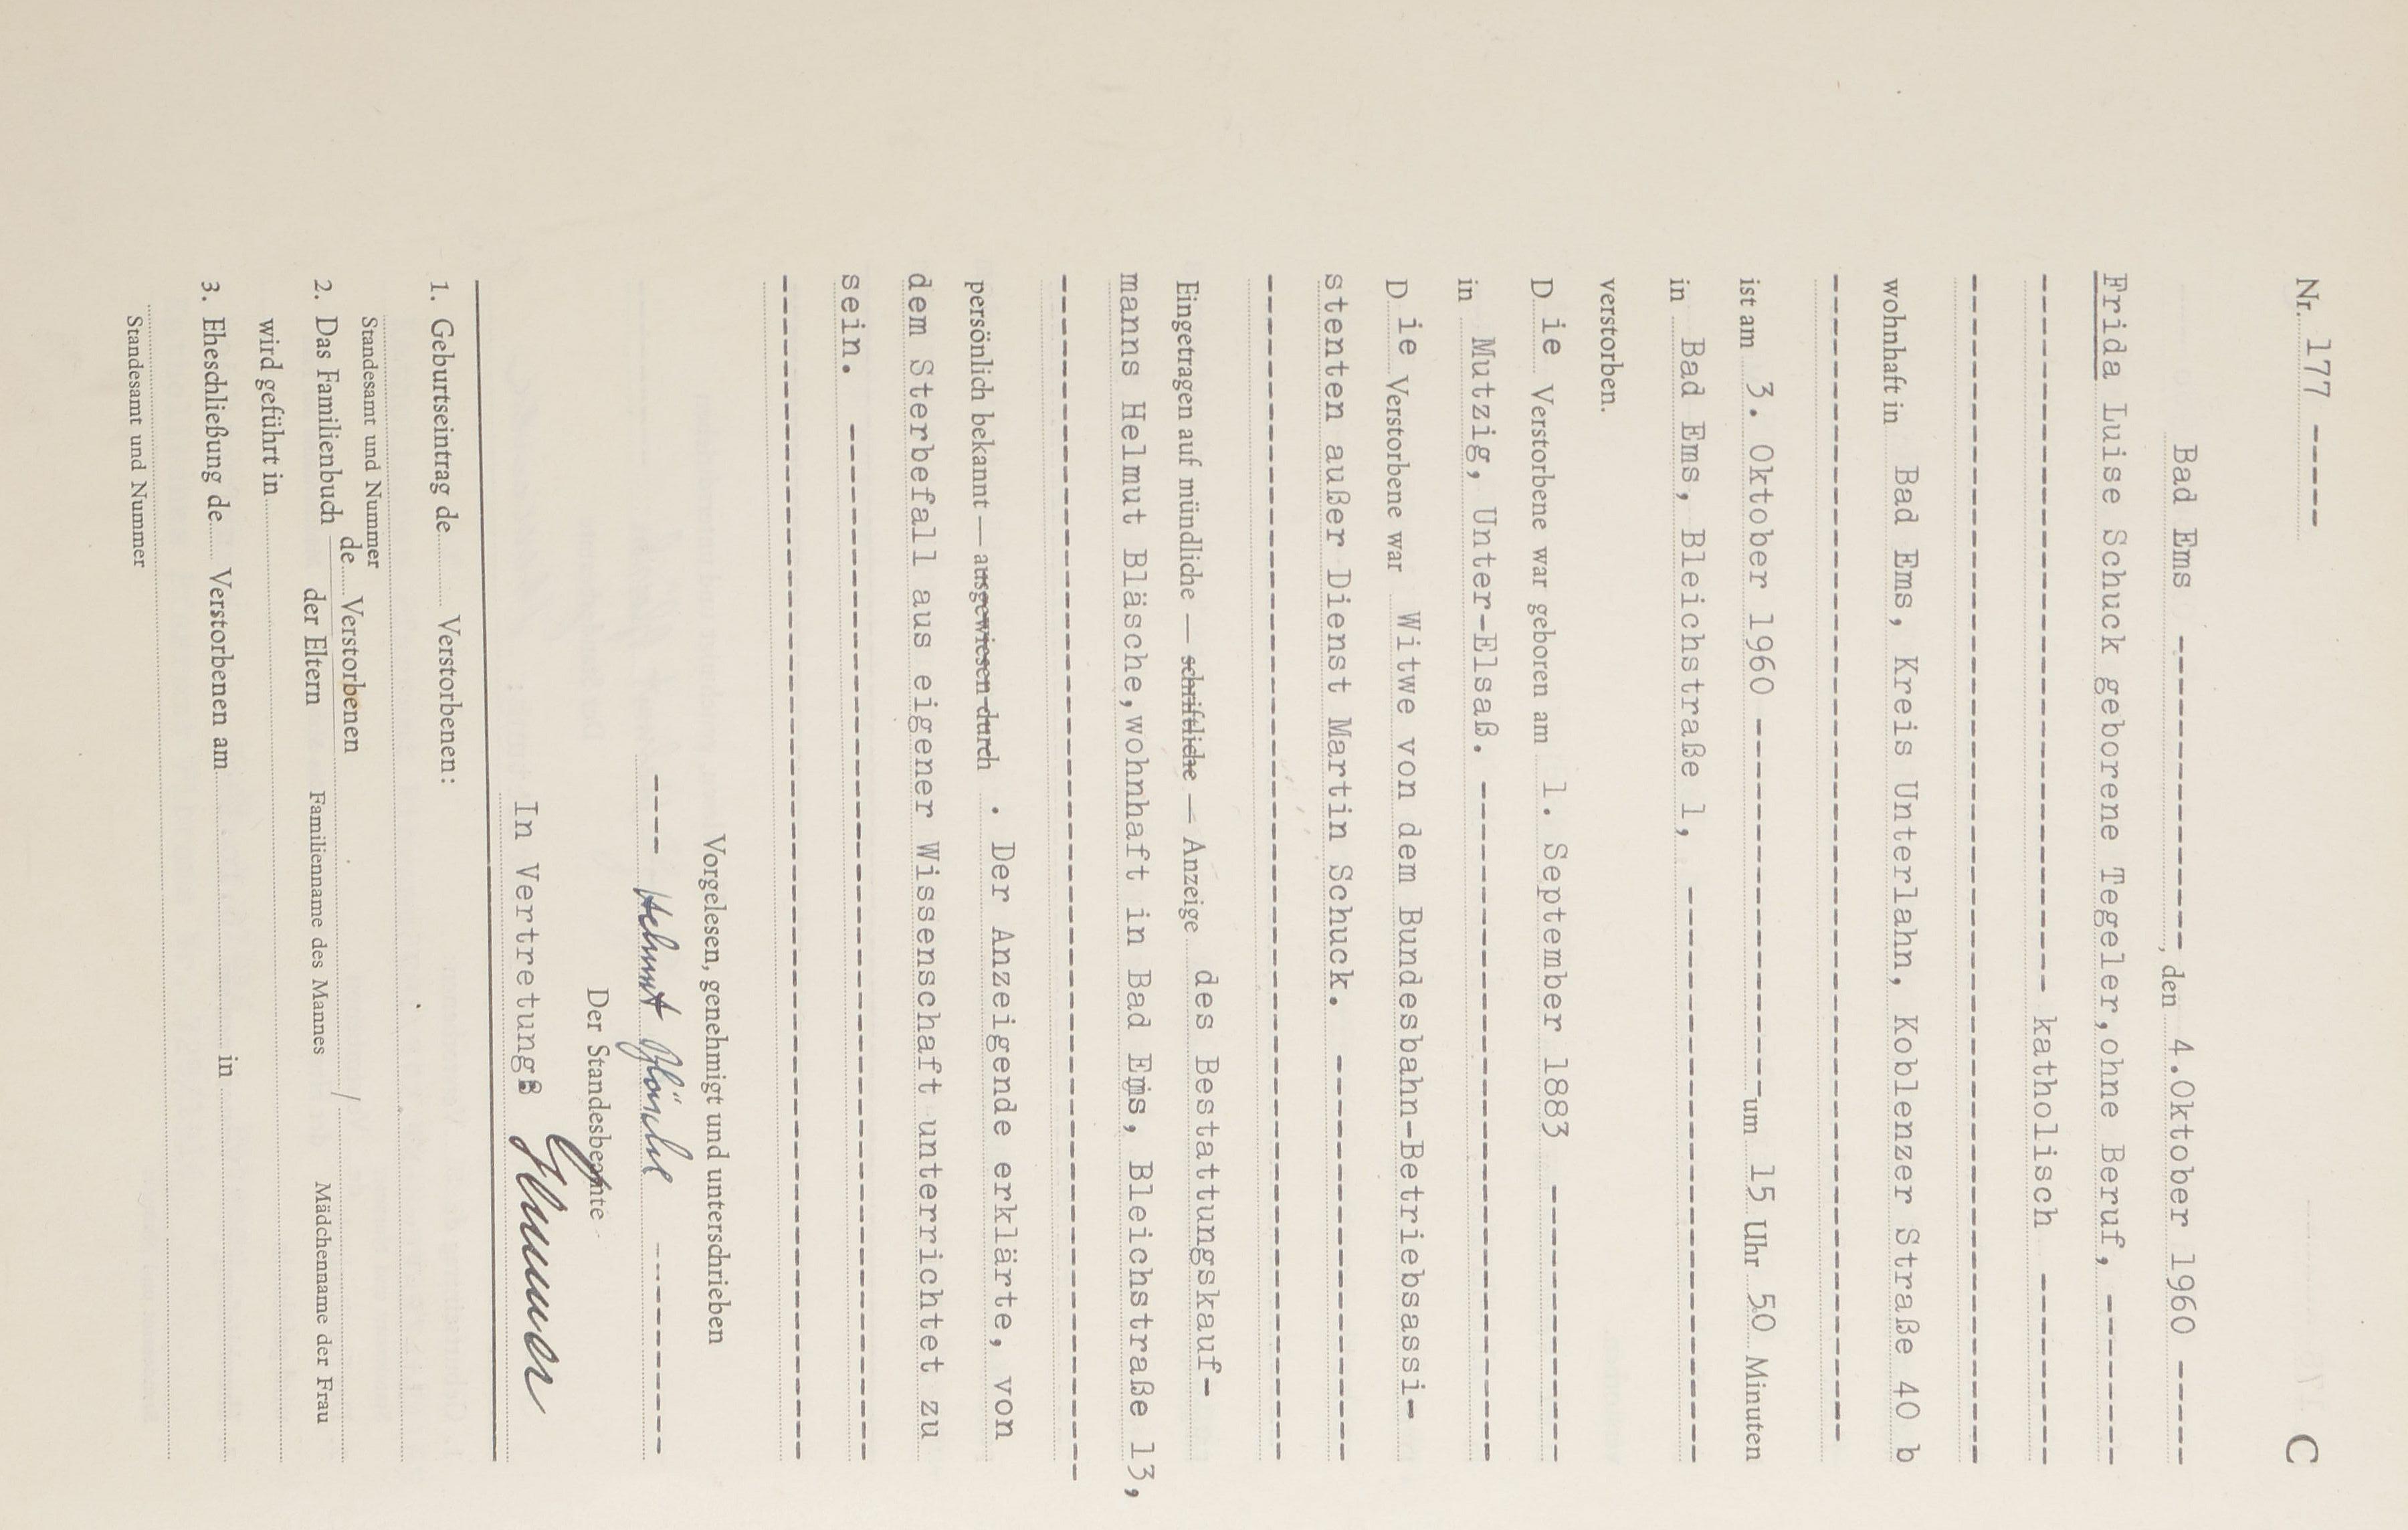 C
Nr. 177 -----
Bad Ems --------------------, den 4.Oktober 1960 ------
Frida Luise Schuck geborene Tegeler,ohne Beruf, ----------
---------------------------------------------- katholisch ------------
----------------------------------------------------------------------------
wohnhaft in Bad Ems, Kreis Unterlahn, Koblenzer Straße 40 b
--------------------------------------------------------------------------
ist am 3. Oktober 1960 ----------------------- um 15 Uhr 50 Minuten
in Bad Ems, Bleichstraße 1, -------------------------------------
verstorben.
D ie Verstorbene war geboren am 1. September 1883 -----------------
in Mutzig, Unter-Elsaß. -------------------------------------------
D ie Verstorbene war Witwe von dem Bundesbahn-Betriebsassi-
stenten außer Dienst Martin Schuck. --------------------------
----------------------------------------------------------------------------
Eingetragen auf mündliche — schriftliche — Anzeige des Bestattungskauf-
manns Helmut Bläsche,wohnhaft in Bad Ems, Bleichstraße 13,
-----------------------------------------------------------------------------
persönlich bekannt — ausgewiesen durch . Der Anzeigende erklärte, von
dem Sterbefall aus eigener Wissenschaft unterrichtet zu
sein. ------------------------------------------------------------------
----------------------------------------------------------------------------
Vorgelesen, genehmigt und unterschrieben
---- Helmut Bläsche --------------
Der Standesbeamte
In Vertretung
1. Geburtseintrag de Verstorbenen:
Standesamt und Nummer
2. Das Familienbuch de Verstorbenen / 
der Eltern Familienname des Mannes Mädchenname der Frau
wird geführt in
3. Eheschließung de Verstorbenen am in
Standesamt und Nummer